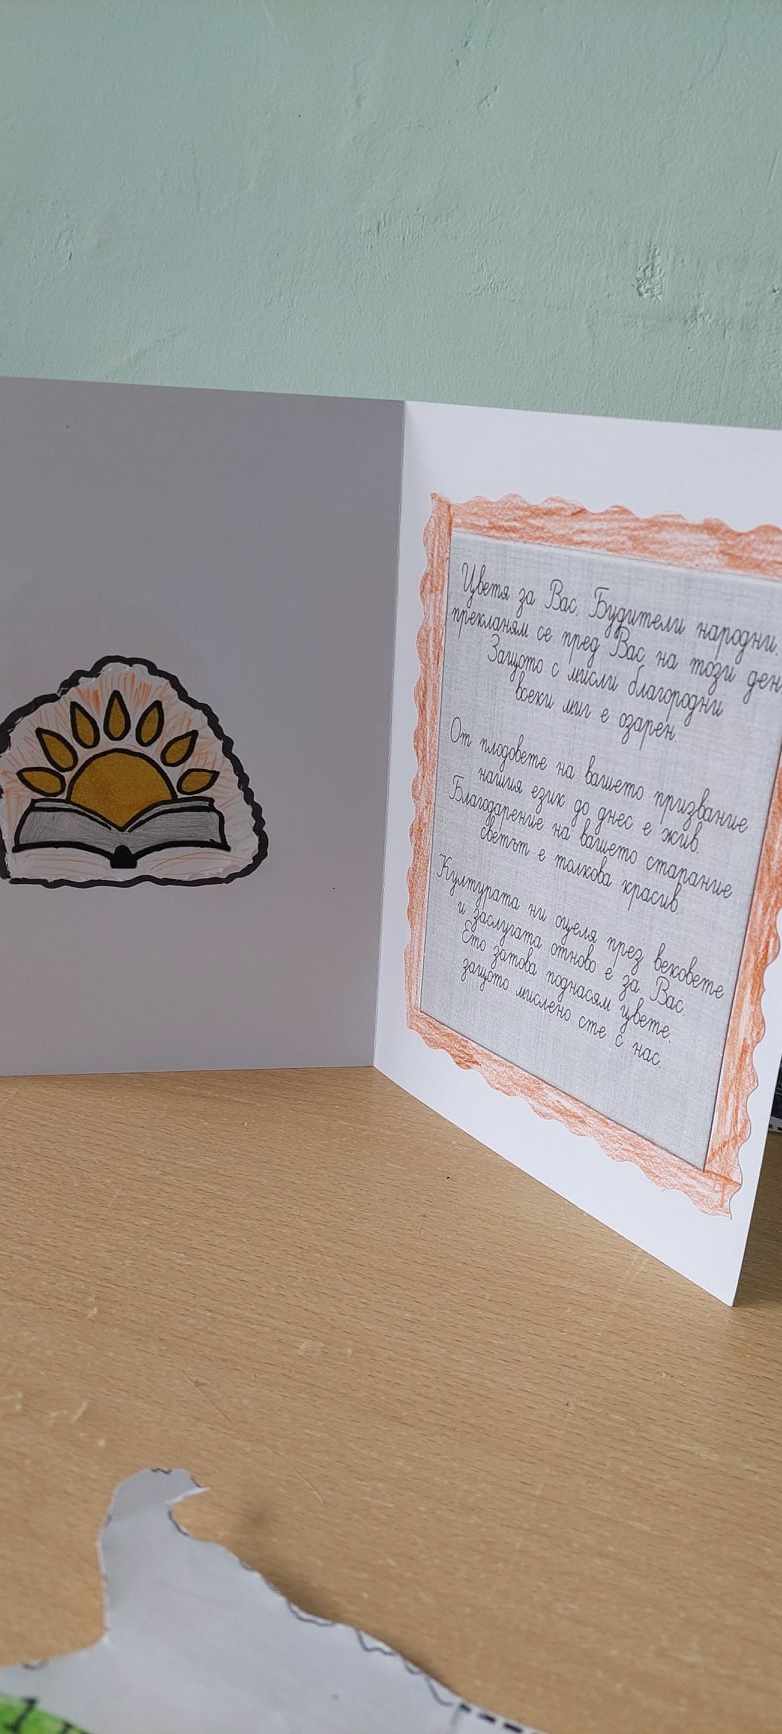 Цветя за Вас, Будители народни,
прекланям се пред Вас на този ден
Защото с мисли благородни
всеки миг е озарен.
От плодовете на вашето призвание
нашия език до днес е жив.
Благодарение на вашето старание
светът е толкова красив.
Културата ни оцеля през вековете
и заслугата отново е за Вас.
Ето затова поднасям цвете,
защото мислено сте с нас.